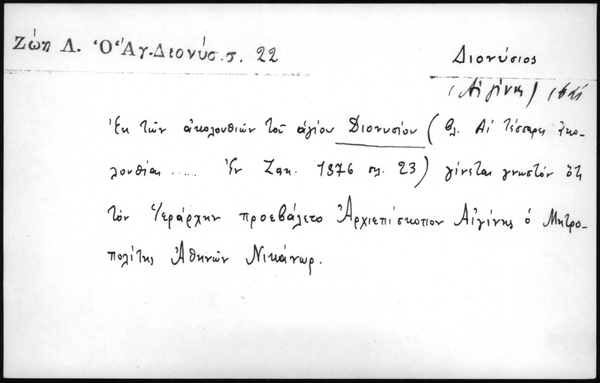 Ζώη Λ. Ὁ Ἁγ. Διονύσ. σ. 22
Διονύσιος
(Αἰγίνης)
Ἐκ τῶν ἀκολουθιῶν τοῦ ἁγίου Διονυσίου (βλ. Αἱ τέσσαρες ἀκο-
λουθίαι ..... Ἐν Ζακ. 1876 σελ. 23) γίνεται γνωστόν ὅτι
τὸν Ἱεράρχην προεβάλετο Ἀρχιεπίσκοπον Αἰγίνης ὁ Μητρο-
πολίτης Ἀθηνῶν Νικάνωρ.